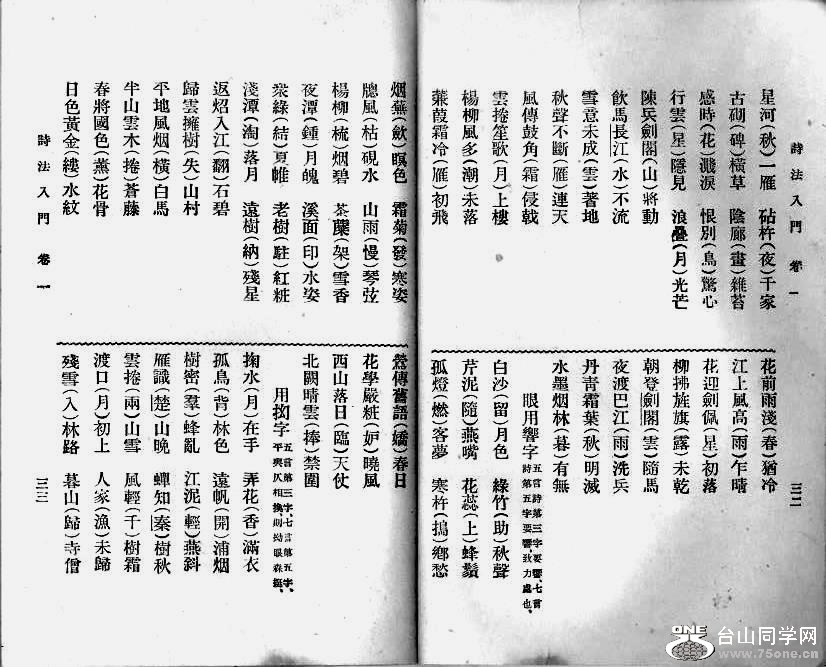 詩法入門 卷一
星河(秋)一雁 砧杵(夜)千家
古砌(碑)橫草 陰廊(畫)雜苔
感時(花)濺淚 恨別(鳥)驚心
行雲(星)隱見 浪疊(月)光芒
陳兵劍閣(山)將動
飲馬長江(水)不流
雪意未成(雲)著地
秋聲不斷(雁)連天
風傳鼓角(霜)侵戟
雲捲笙歌(月)上樓
楊柳風多(潮)未落
蒹葭霜冷(雁)初飛
花前雨淺(春)猶冷
江上風高(雨)乍晴
花迎劍佩(星)初落
柳拂旌旗(露)未乾
朝登劍閣(雲)隨馬
夜渡巴江(雨)洗兵
丹青霜葉(秋)明滅
水墨烟林(暮)有無
眼用響字 五言詩第三字要響、七言
詩第五字要響、致力處也、
白沙(留)月色 綠竹(助)秋聲
芹泥(隨)燕嘴 花蕊(上)蜂鬚
孤燈(燃)客夢 寒杵(搗)鄉愁
三二
烟蕪(斂)暝色 霜菊(發)寒姿
牕風(枯)硯水 山雨(慢)琴弦
楊柳(梳)烟碧 荼䕷(架)雪香
夜潭(鍾)月魄 溪面(印)水姿
衆綠(結)夏帷 老樹(駐)紅粧
淺潭(淘)落月 遠樹(納)殘星
返炤入江(翻)石碧
歸雲擁樹(失)山村
平地風烟(橫)白馬
半山雲木(捲)蒼藤
春將國色(蒸)花骨
日色黃金(縷)水紋
鶯傳舊語(嬌)春日
花學嚴粧(妒)曉風
西山落日(臨)天仗
北闕晴雲(捧)禁圍
用拗字 五言第三字、七言第五字、
平與仄相換、則拗眼森挺、
掬水(月)在手 弄花(香)滿衣
孤鳥(背)林色 遠帆(開)浦烟
樹密(羣)蜂亂 江泥(輕)燕斜
雁識(楚)山晚 蟬知(秦)樹秋
雲捲(兩)山雪 風輕(千)樹霜
渡口(月)初上 人家(漁)未歸
殘雪(入)林路 暮山(歸)寺僧
詩法入門 卷一
三三
ONE
台山同学网
www.75one.cn